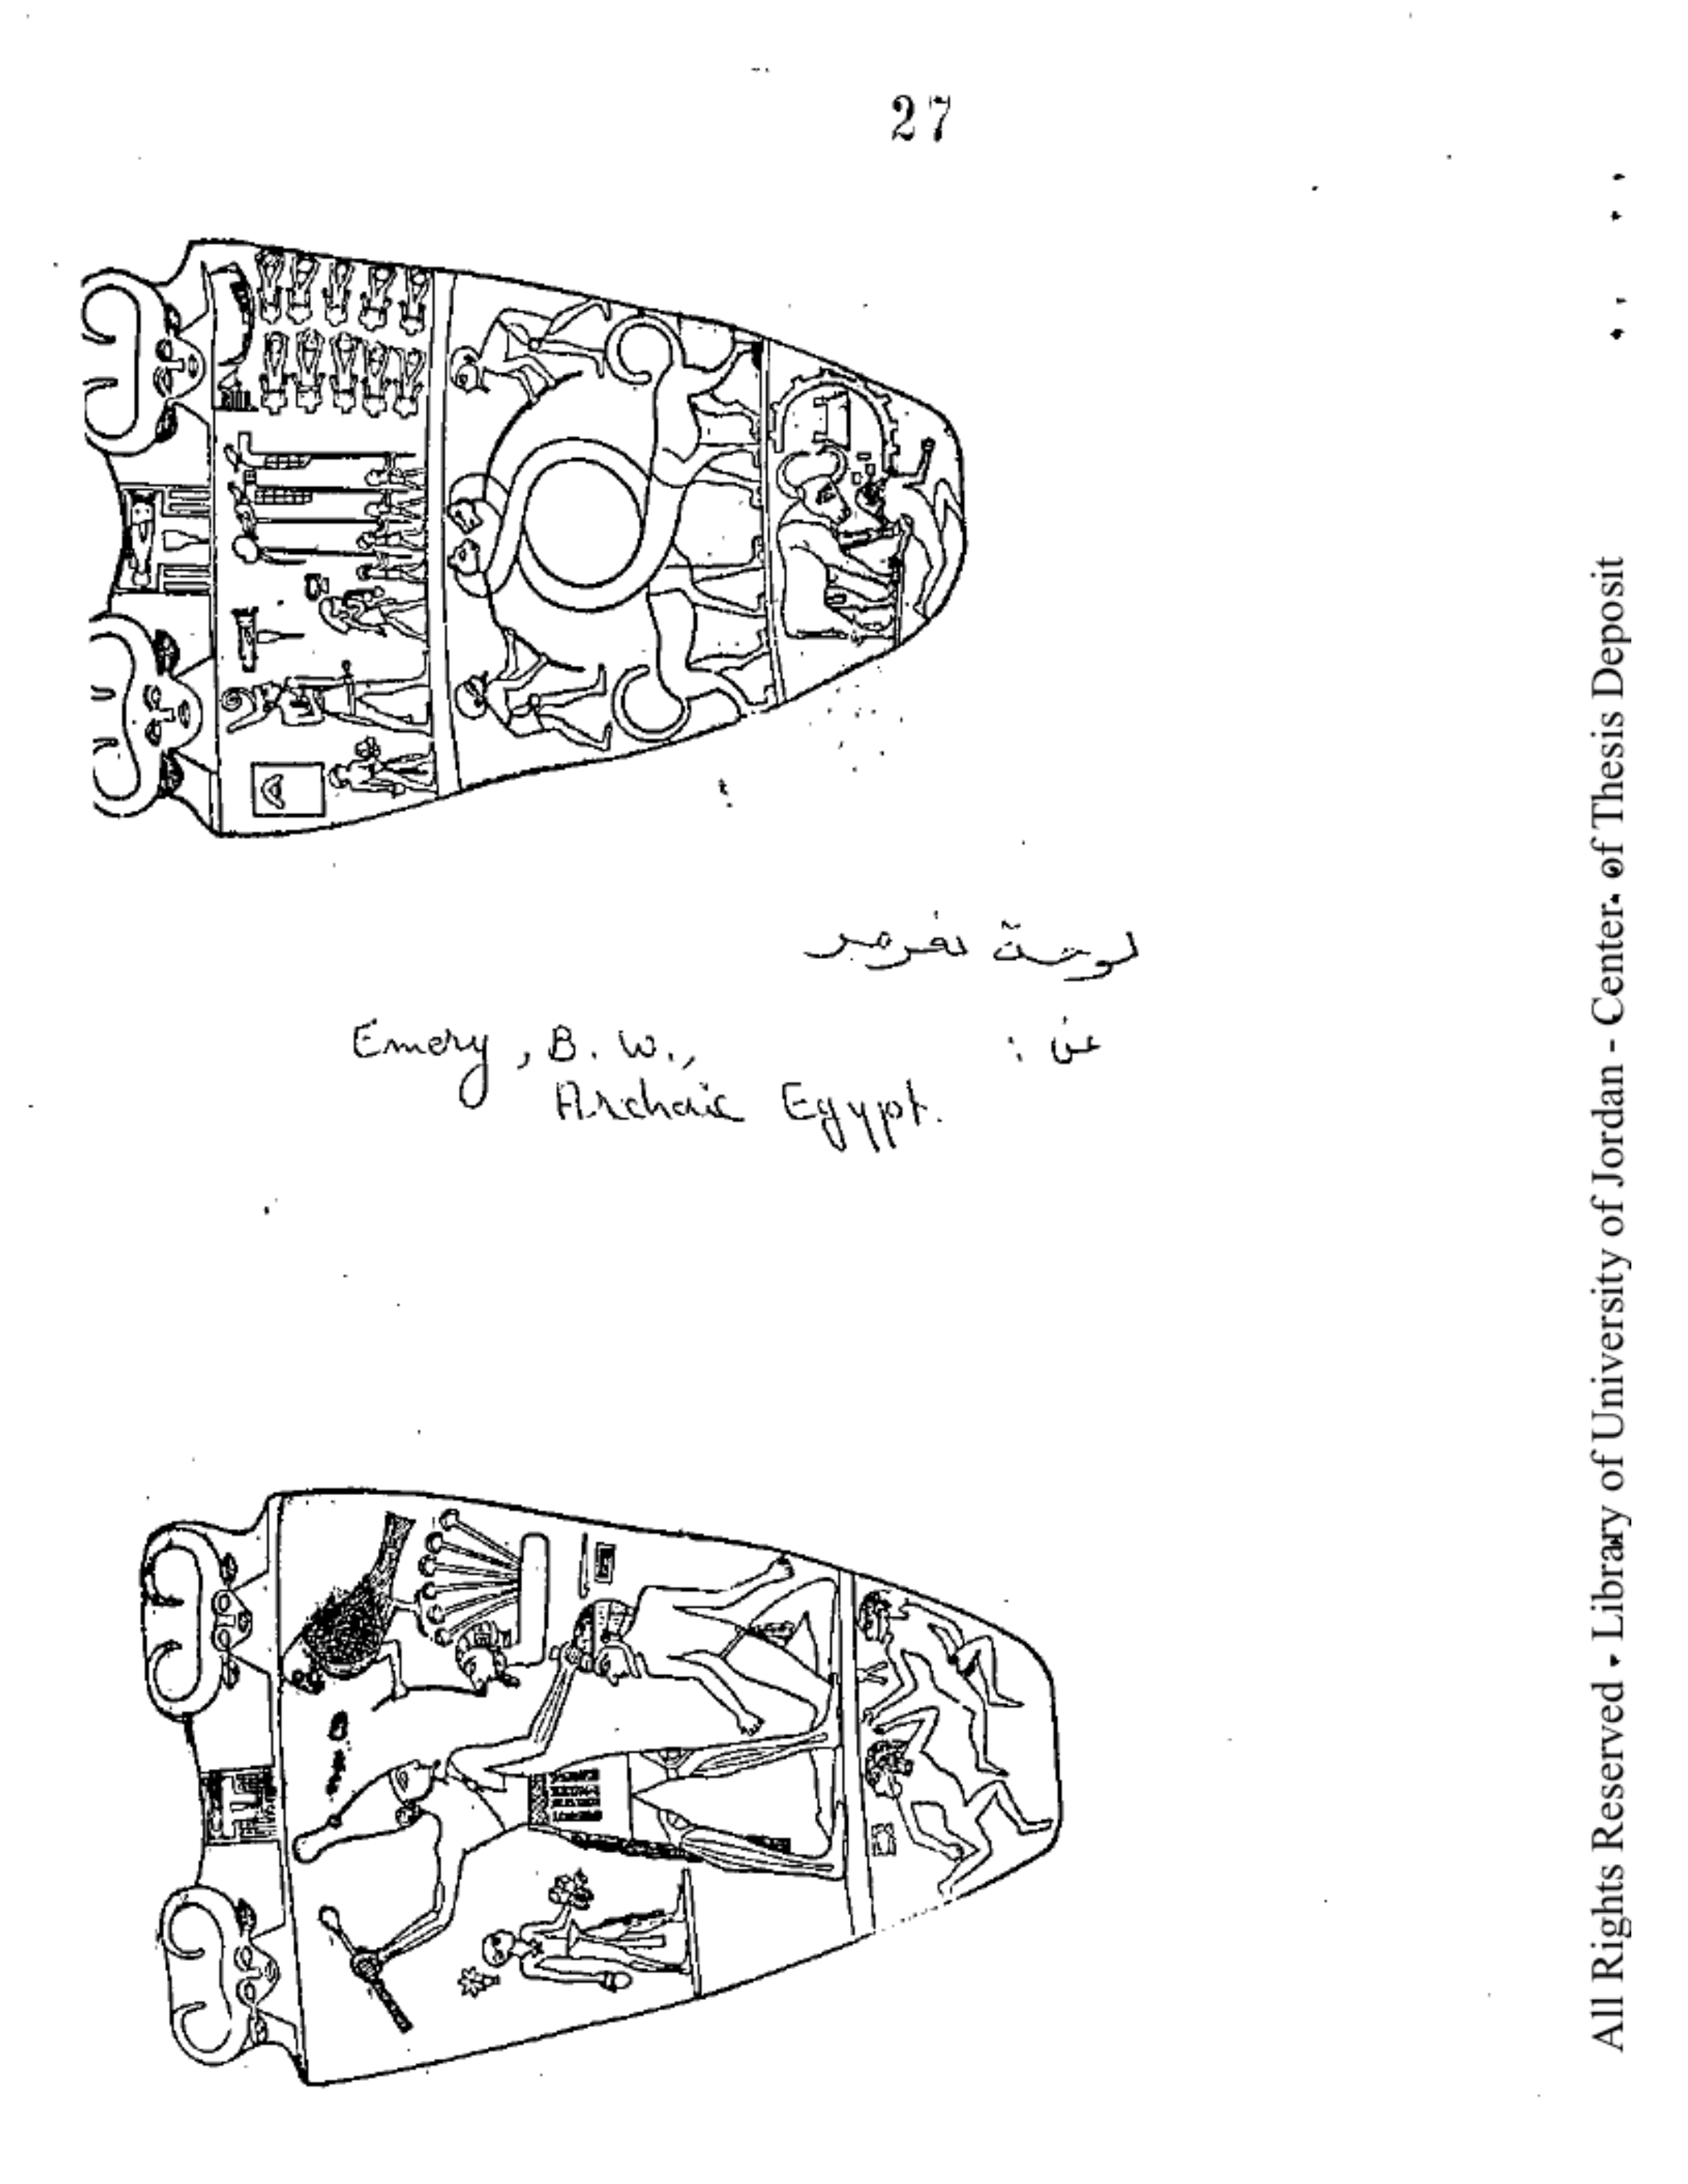 27
لوحة نعرمر
عن :
Emery, B. W.,
Archaic Egypt.
All Rights Reserved - Library of University of Jordan - Center of Thesis Deposit